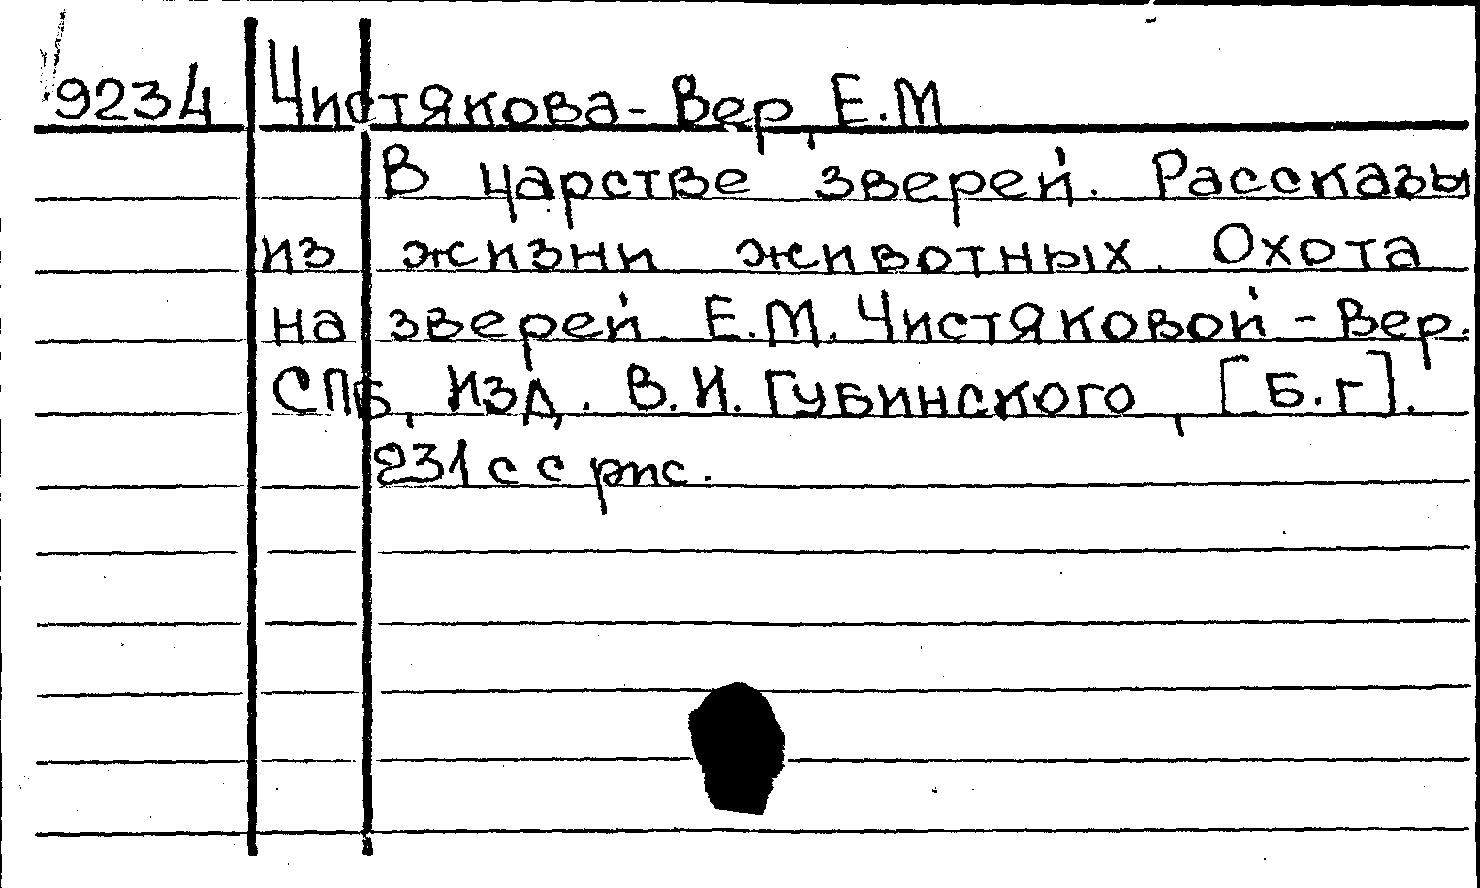 9234 Чистякова-Вер, Е.М
В царстве зверей. Рассказы
из жизни животных. Охота
на зверей Е.М. Чистяковой-Вер.
СПб, Изд. В.И. Губинского, [Б.г].
231 с с рис.